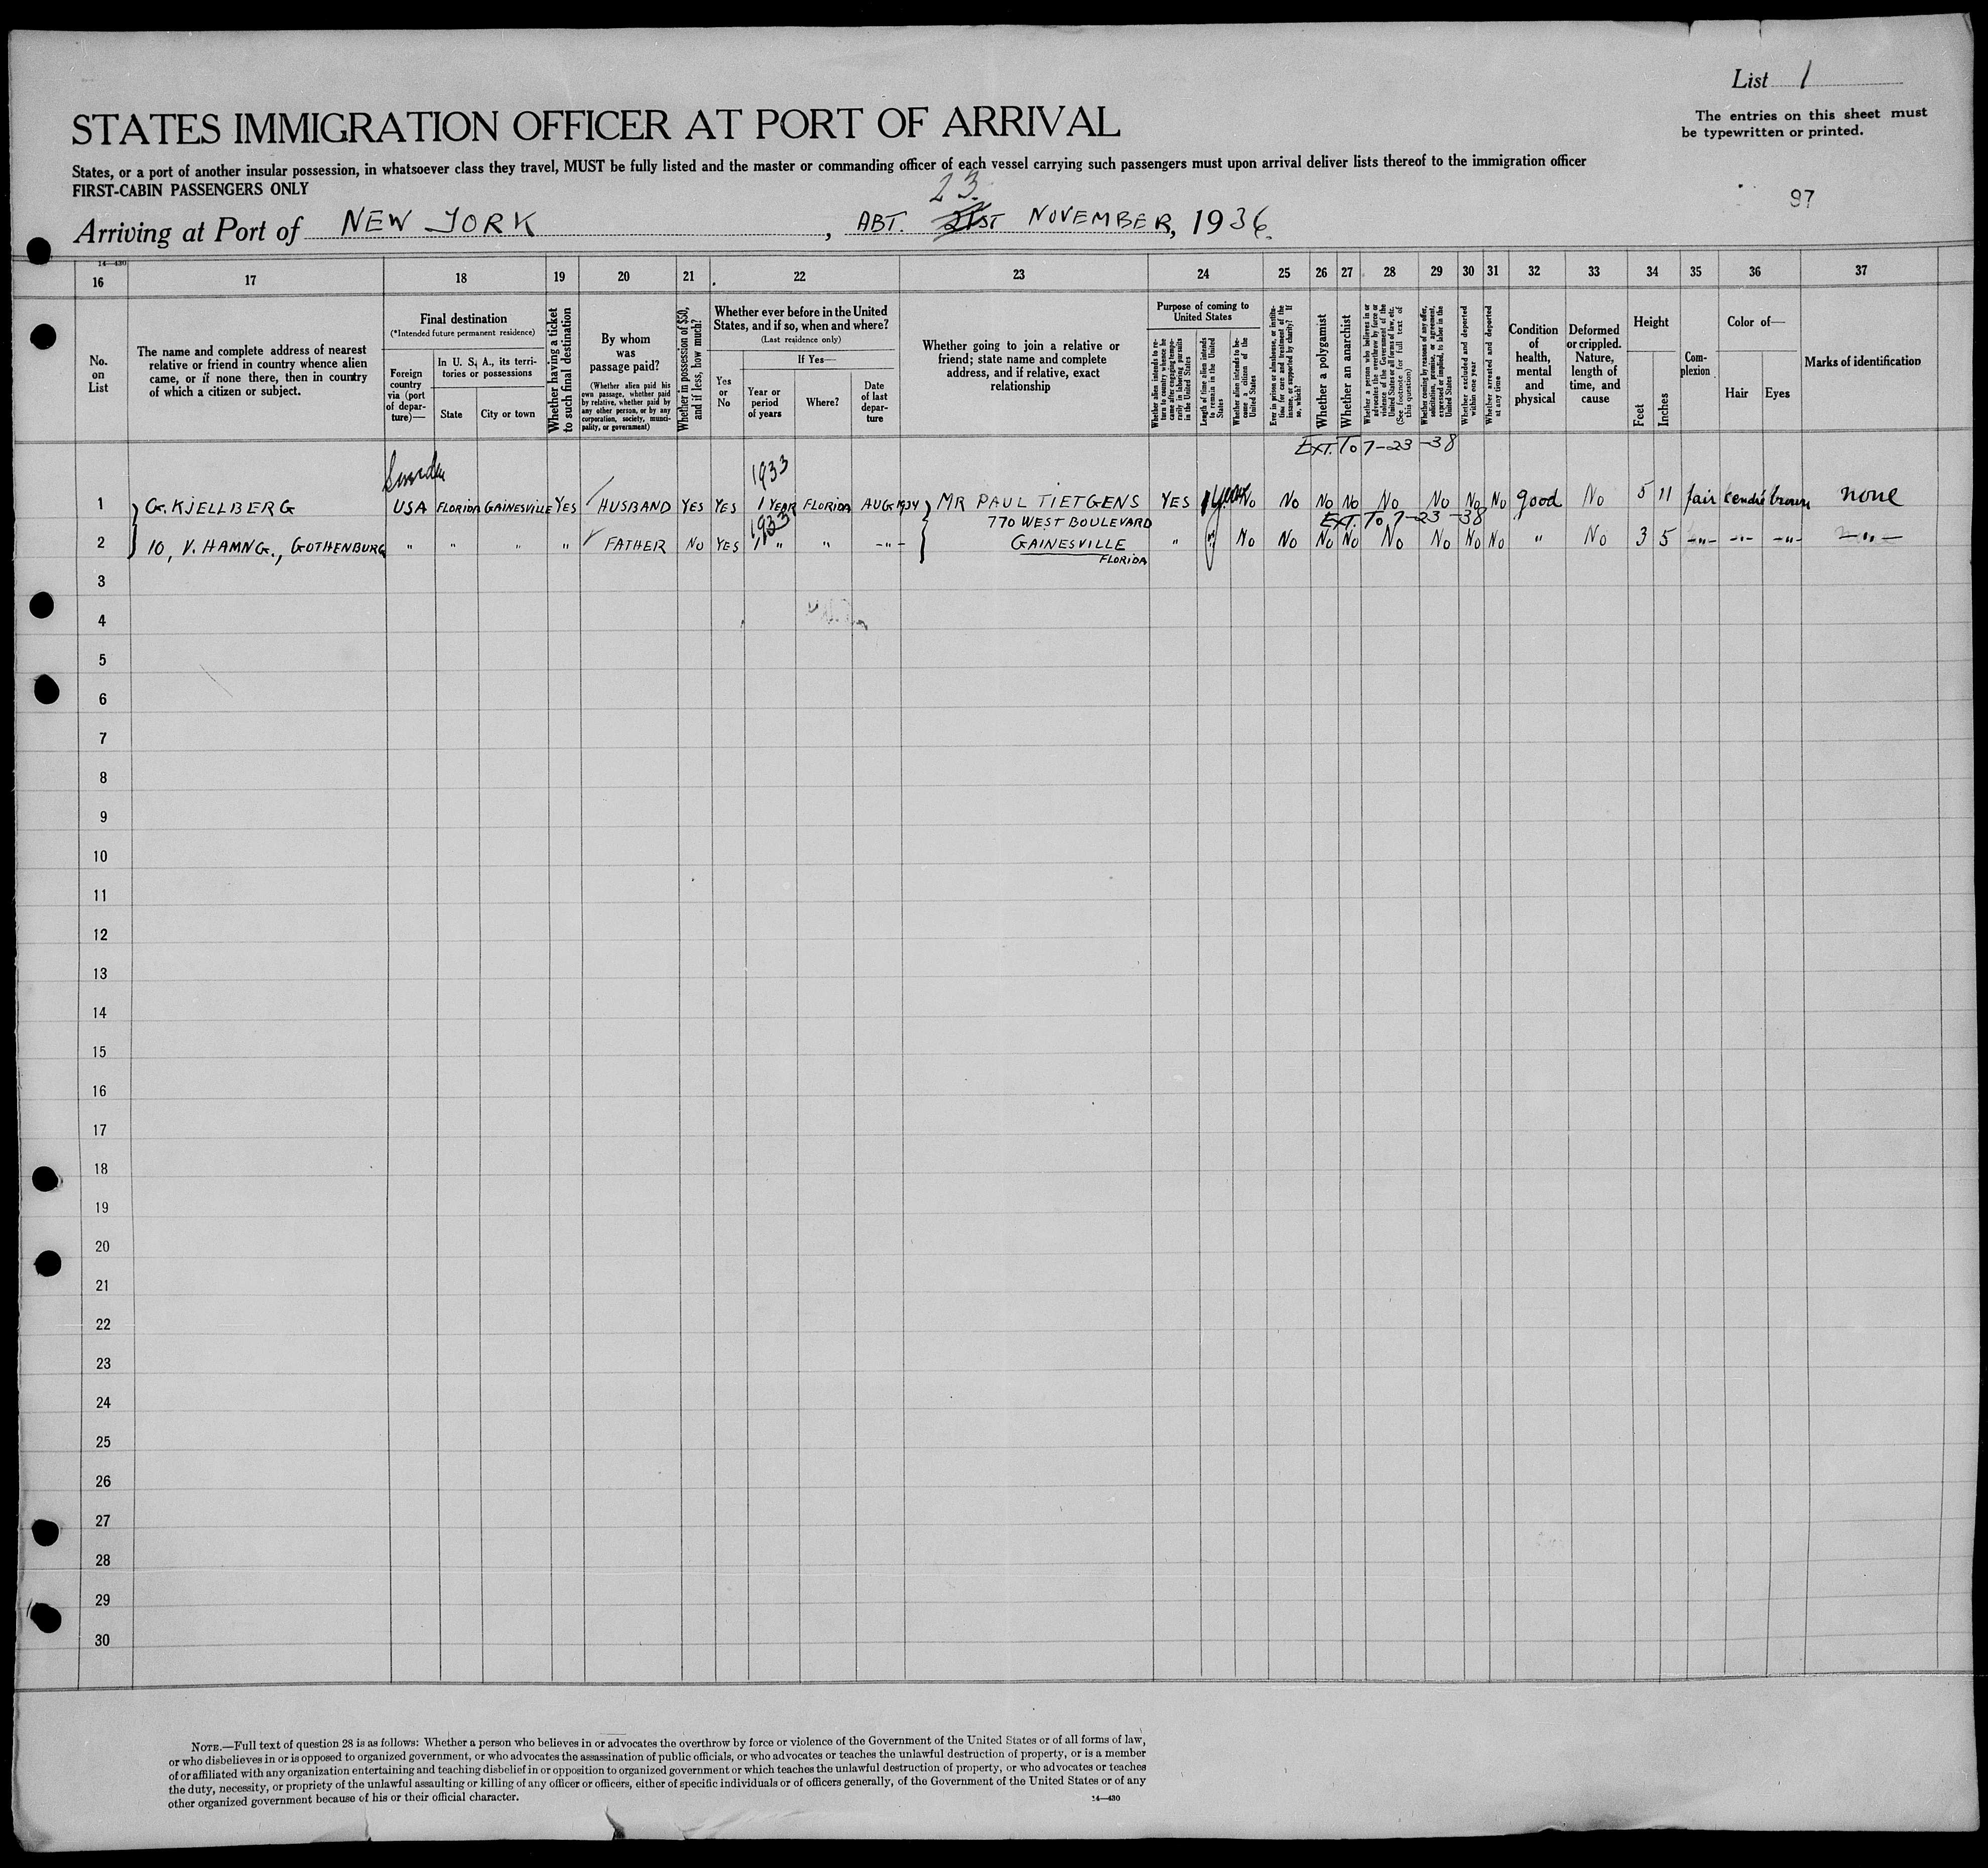 List 1
The entries on this sheet must
be typewritten or printed.
STATES IMMIGRATION OFFICER AT PORT OF ARRIVAL
States, or a port of another insular possession, in whatsoever class they travel, MUST be fully listed and the master or commanding officer of each vessel carrying such passengers must upon arrival deliver lists thereof to the immigration officer
FIRST-CABIN PASSENGERS ONLY
97
23
Arriving at Port of NEW YORK, ABT. 21ST NOVEMBER, 1936.
14—430
16 17 18 19 20 21 22 23 24 25 26 27 28 29 30 31 32 33 34 35 36 37
No.
on
List
The name and complete address of nearest
relative or friend in country whence alien
came, or if none there, then in country
of which a citizen or subject.
Final destination
(*Intended future permanent residence)
Foreign
country
via (port
of depar-
ture)—
In U. S. A., its terri-
tories or possessions
State
City or town
Whether having a ticket
to such final destination
By whom
was
passage paid?
(Whether alien paid his
own passage, whether paid
by relative, whether paid by
any other person, or by any
corporation, society, munici-
pality, or government)
Whether in possession of $50,
and if less, how much?
Whether ever before in the United
States, and if so, when and where?
(Last residence only)
Yes
or
No
If Yes—
Year or
period
of years
Where?
Date
of last
depar-
ture
Whether going to join a relative or
friend; state name and complete
address, and if relative, exact
relationship
Purpose of coming to
United States
Whether alien intends to re-
turn to country whence he
came after engaging tempo-
rarily in laboring pursuits
in the United States
Length of time alien intends
to remain in the United
States
Whether alien intends to be-
come a citizen of the
United States
Ever in prison or almshouse, or institu-
tion for care and treatment of the
insane, or supported by charity? If
so, which?
Whether a polygamist
Whether an anarchist
Whether a person who believes in or
advocates the overthrow by force or
violence of the Government of the
United States or all forms of law, etc.
(See footnote for full text of
this question)
Whether coming by reasons of any offer,
solicitation, promise, or agreement,
expressed or implied, to labor in the
United States
Whether excluded and deported
within one year
Whether arrested and deported
at any time
Condition
of
health,
mental
and
physical
Deformed
or crippled.
Nature,
length of
time, and
cause
Height
Feet
Inches
Com-
plexion
Color of—
Hair
Eyes
Marks of identification
EXT. TO 7-23-38
Sweden
1933
1 G. KJELLBERG USA FLORIDA GAINESVILLE YES HUSBAND YES YES 1 YEAR FLORIDA AUG 1934 MR PAUL TIETGENS YES 1 year No No No No No No No No good No 5 11 fair brown none
770 WEST BOULEVARD
EXT. TO 7-23-38
1933
2 10, V. HAMNG., GOTHENBURG " " " " FATHER NO YES " " -"- GAINESVILLE " " No No No No No No No No " No 3 5 -"- -"- -"- -"-
FLORIDA
3
4
5
6
7
8
9
10
11
12
13
14
15
16
17
18
19
20
21
22
23
24
25
26
27
28
29
30
NOTE.—Full text of question 28 is as follows: Whether a person who believes in or advocates the overthrow by force or violence of the Government of the United States or of all forms of law,
or who disbelieves in or is opposed to organized government, or who advocates the assassination of public officials, or who advocates or teaches the unlawful destruction of property, or is a member
of or affiliated with any organization entertaining and teaching disbelief in or opposition to organized government or which teaches the unlawful destruction of property, or who advocates or teaches
the duty, necessity, or propriety of the unlawful assaulting or killing of any officer or officers, either of specific individuals or of officers generally, of the Government of the United States or of any
other organized government because of his or their official character.
14—430